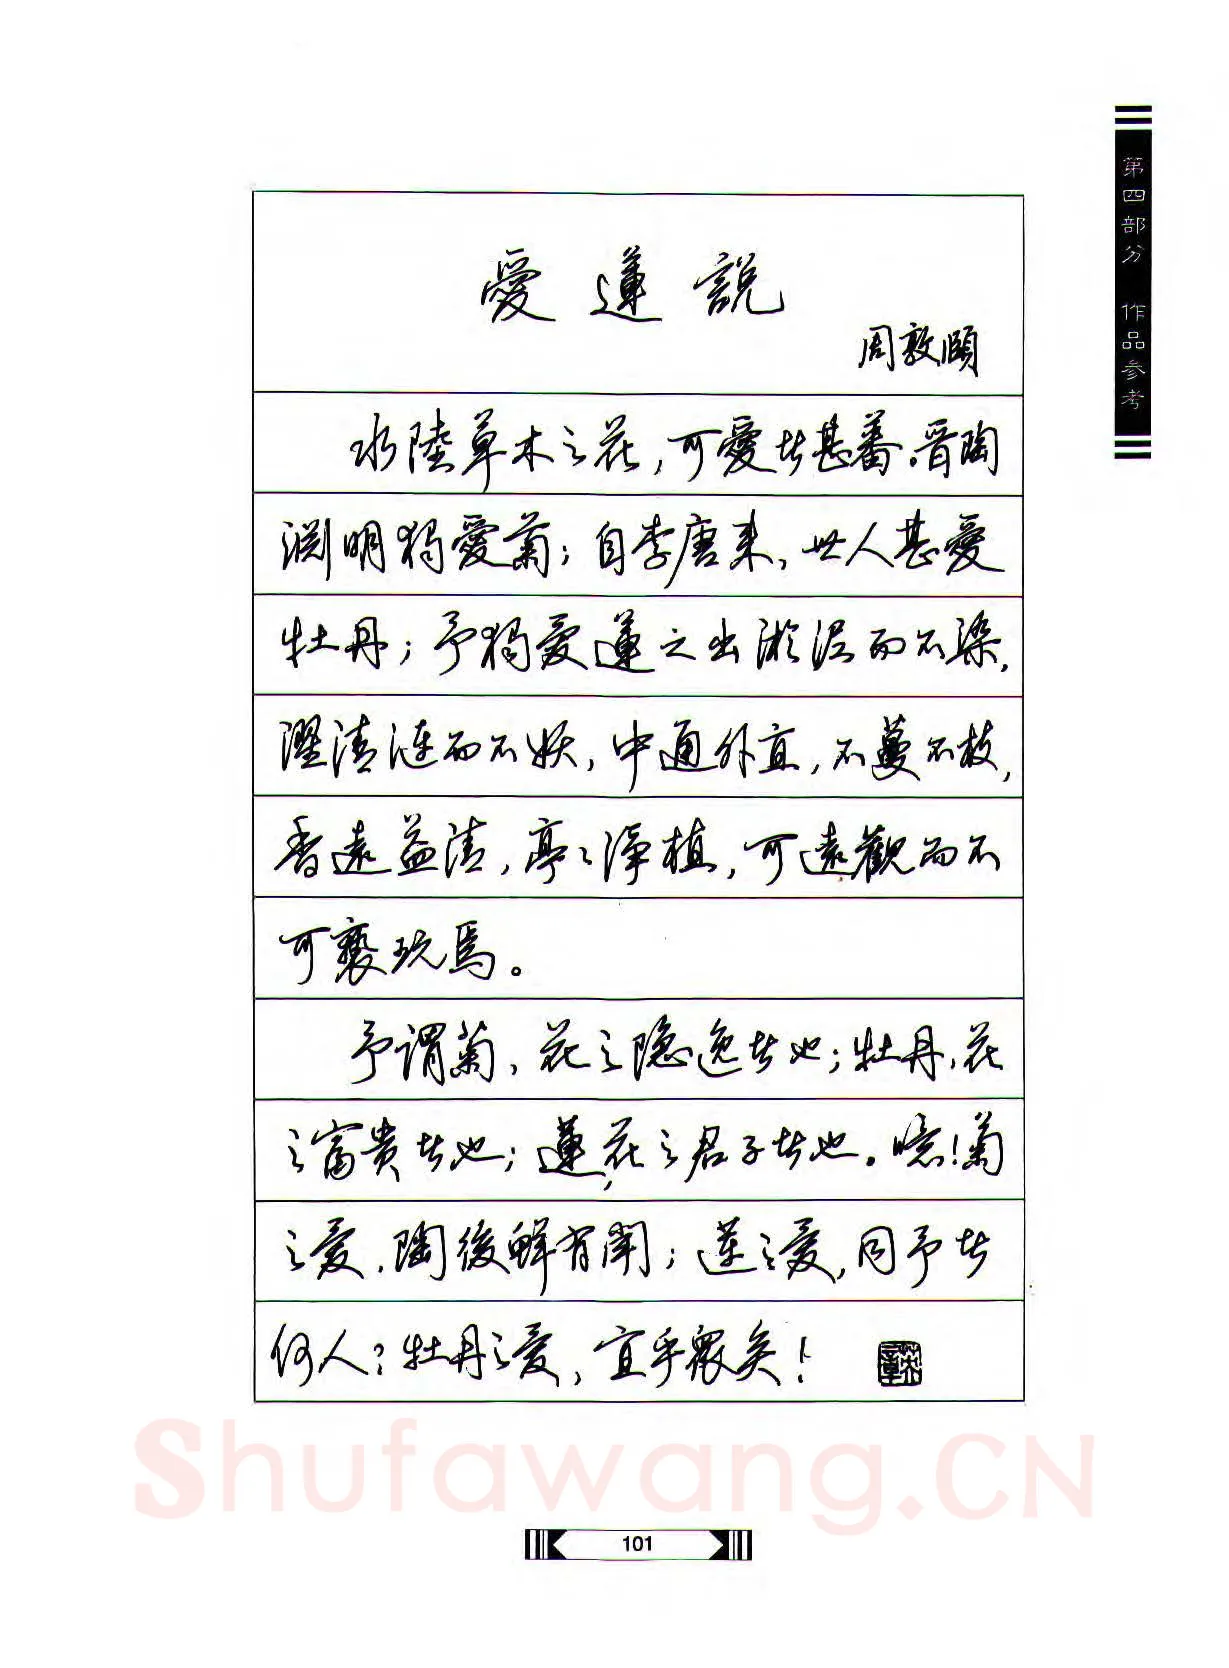 愛蓮說
周敦頤
水陸草木之花，可愛者甚蕃。晋陶
淵明獨愛菊；自李唐來，世人甚愛
牡丹；予獨愛蓮之出淤泥而不染，
濯清漣而不妖，中通外直，不蔓不枝，
香遠益清，亭亭淨植，可遠觀而不
可褻玩焉。
予謂菊，花之隐逸者也；牡丹，花
之富貴者也；蓮，花之君子者也。噫！菊
之愛，陶後鮮有聞；蓮之愛，同予者
何人？牡丹之愛，宜乎眾矣！
第四部分 作品参考
Shufawang.CN
101